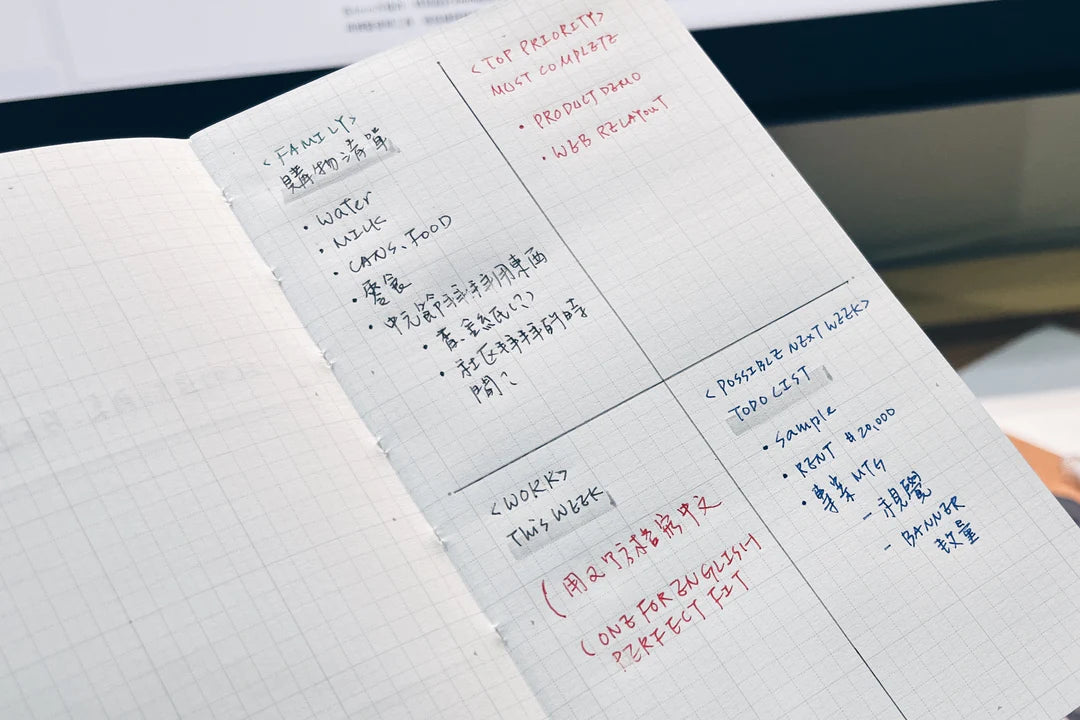 <FAMILY>
購物清單
• Water
• MILK
• CANS、FOOD
• 零食
• 中元節拜拜用東西
• 金紙(?)
• 社区拜拜的時
間?
<TOP PRIORITY>
MOST COMPLETE
• PRODUCT DEMO
• WEB RELAYOUT
<WORK>
THIS WEEK
(用2個方格寫中文
(ONE FOR ENGLISH
PERFECT FIT
<POSSIBLE NEXT WEEK>
TODO LIST
• Sample
• RENT $20,000
• 專案 MTG
- 視覺
- BANNER
數量